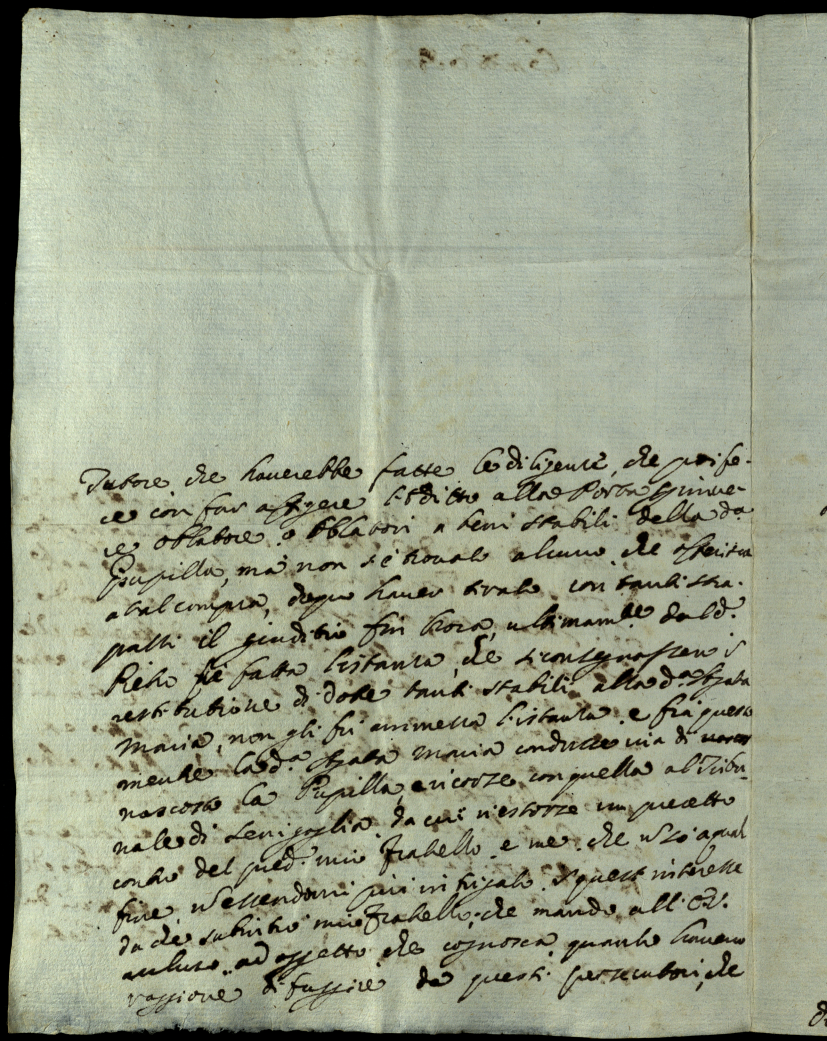 Tutore che haverebbe fatte le diligenze, che poi fe-
ce con far affigere l'editto alla Porta
re oblatore, o oblatori a beni stabili della da
Pupilla, mà non s'è trovato alcuno che
a tal compra, dopo haver tirato con tanti stra-
patti il giuditio fin hora, ultimamte dal do
fù fatta l'istanza, che si consegnassero i
restitutione di dote tanti stabili alla da Agata
Maria, non gli fu ammessa l'istanza e frà questo
mentre la da Agata Maria condusse via di
nascosto la Pupilla, e ricorse con quella al Tribu-
nale di Senigaglia da cui n'estorse un precetto
contro del pred.o mio fratello e me che
fine, n'essendomi più intrigato in quest'interesse
da che subintrò mio fratello, che mando all'
ad effetto che cognosca quanto havevo
raggione di fuggire da questi persecutori, che